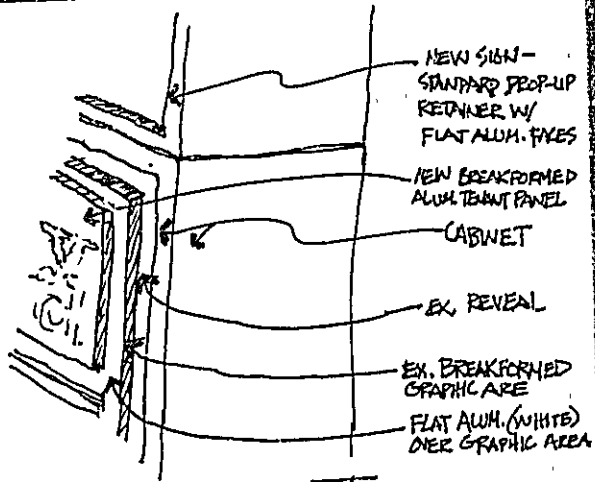 NEW SIGN-
STANDARD DROP-UP
RETAINER W/
FLAT ALUM. FACES
NEW BREAKFORMED
ALUM. TENANT PANEL
CABINET
EX. REVEAL
EX. BREAKFORMED
GRAPHIC ARE
FLAT ALUM. (WHITE)
OVER GRAPHIC AREA